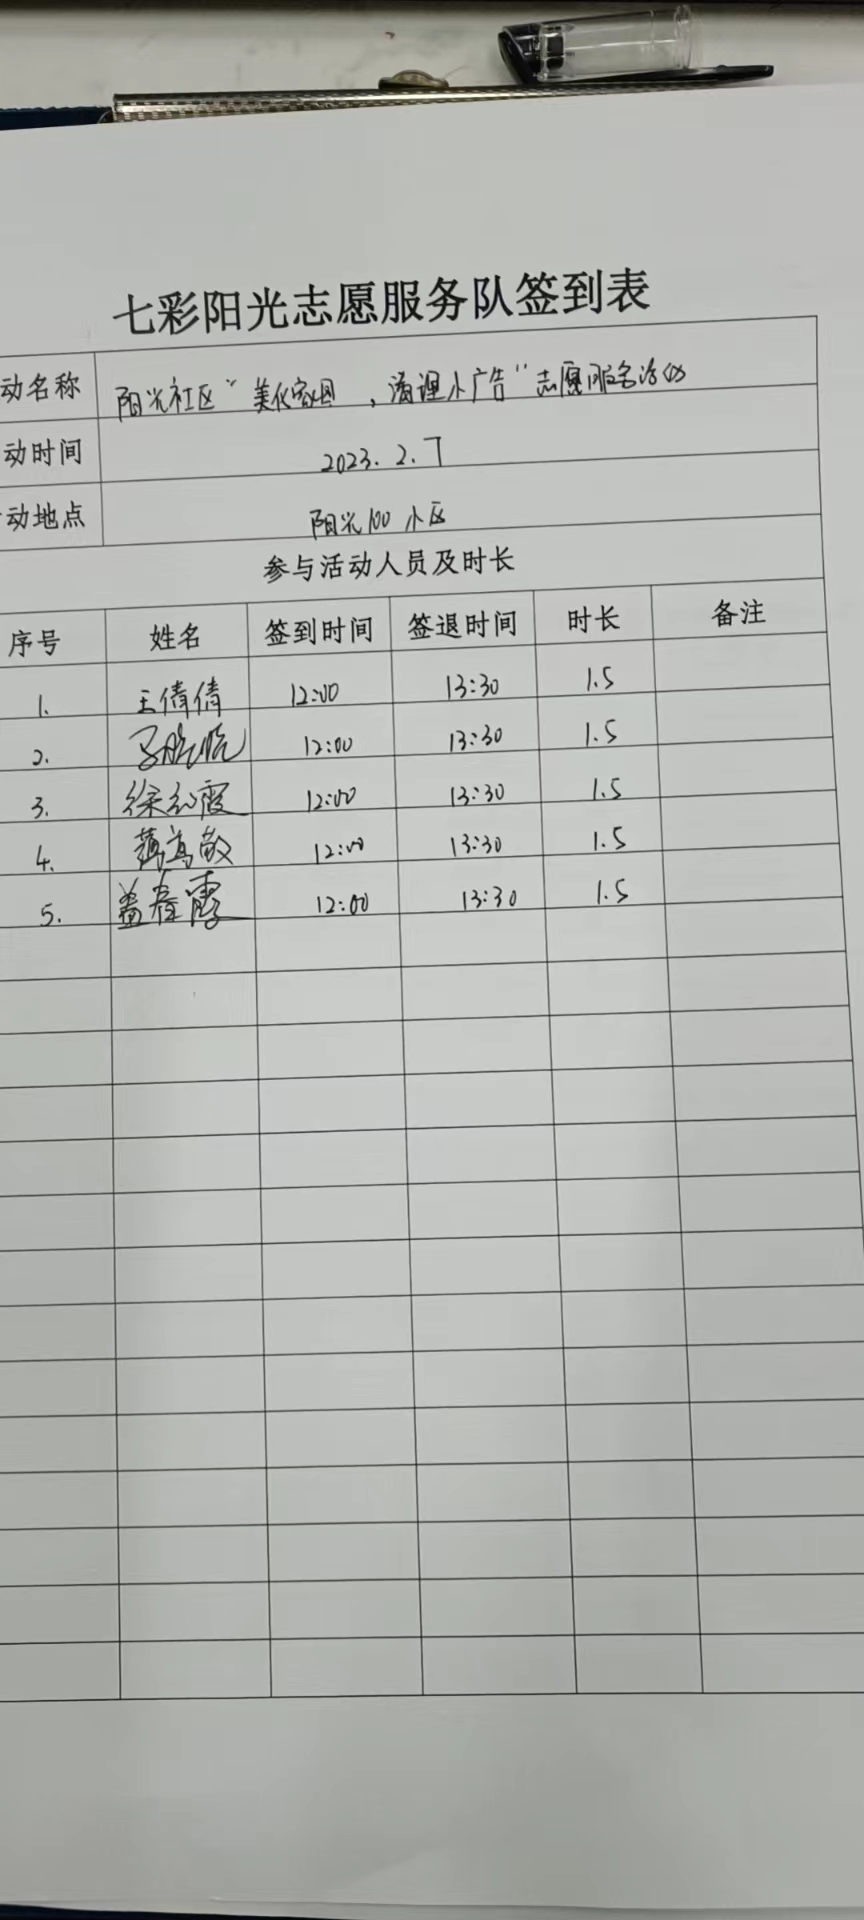 七彩阳光志愿服务队签到表
动名称 阳光社区“美化家园，清理小广告”志愿服务活动
动时间 2023.2.7
动地点 阳光100小区
参与活动人员及时长
序号 姓名 签到时间 签退时间 时长 备注
1. 王倩倩 12:00 13:30 1.5
2. 12:00 13:30 1.5
3. 徐红霞 12:00 13:30 1.5
4. 12:00 13:30 1.5
5. 盖春霞 12:00 13:30 1.5